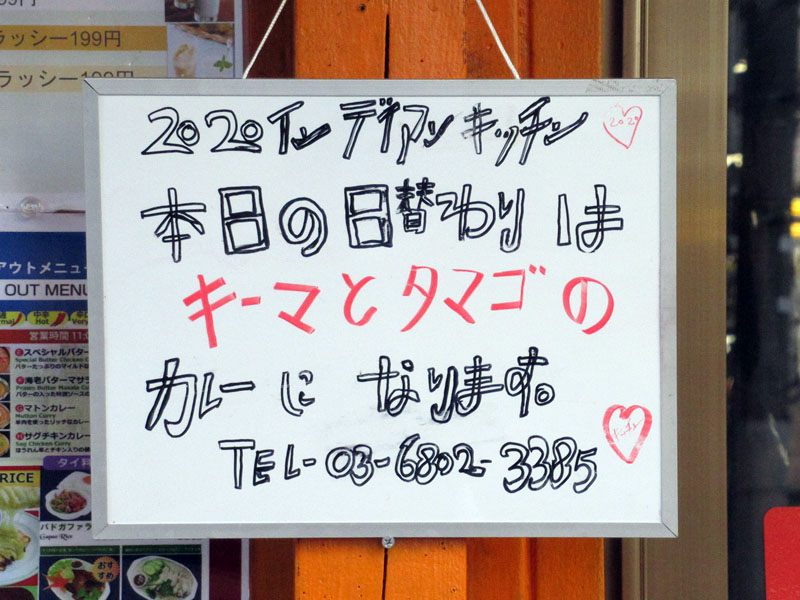 ラッシー199円
ラッシー199円
2020インディアンキッチン
2020
本日の日替わりは
キーマとタマゴの
カレーに なります。
TEL-03-6802-3385
アウトメニュー
OUT MENU
中辛
Hot
営業時間 11:
スペシャルバター
Special Butter Chicken
海老バターマサラ
Prawn Butter Masala
マトンカレー
Mutton Curry
サグチキンカレー
Sag Chicken Curry
タイ料
RICE
バドガファラ
Gapao Rice
おすすめ